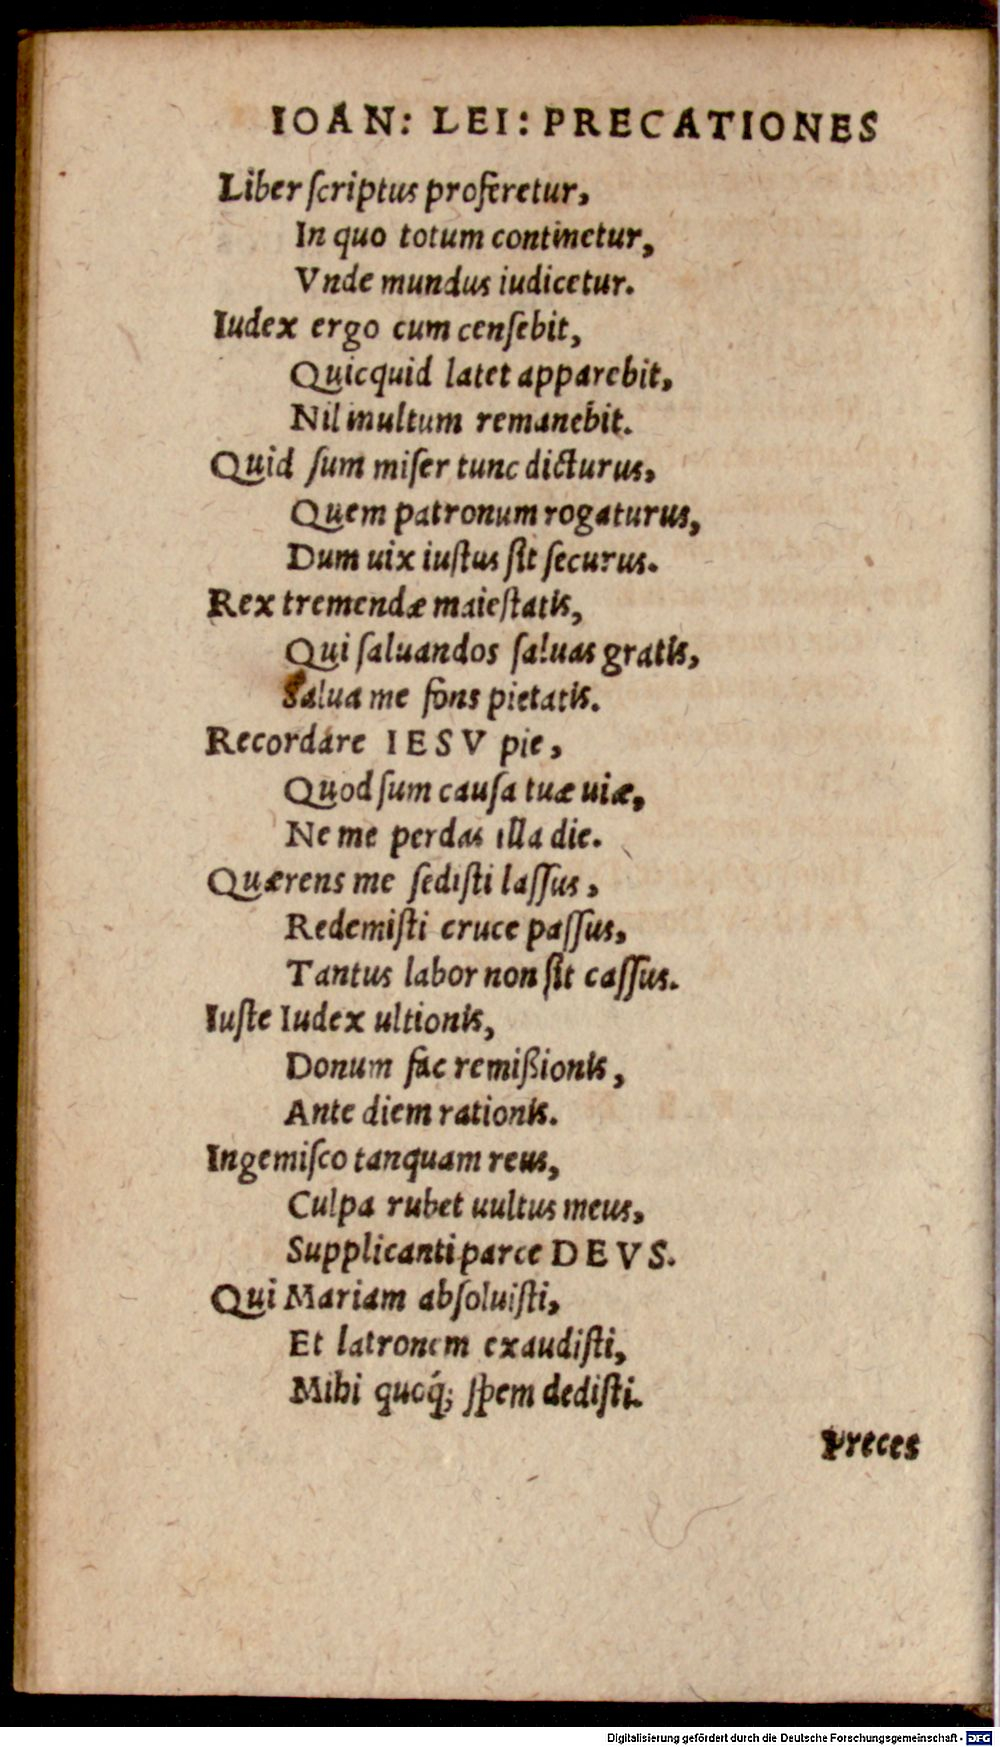 IOAN: LEI: PRECATIONES
Liber ſcriptus proferetur,
In quo totum continetur,
Vnde mundus iudicetur.
Iudex ergo cum cenſebit,
Quicquid latet apparebit,
Nil inultum remanebit.
Quid ſum miſer tunc dicturus,
Quem patronum rogaturus,
Dum uix iuſtus ſit ſecurus.
Rex tremendæ maieſtatis,
Qui ſaluandos ſaluas gratis,
Salua me fons pietatis.
Recordare IESV pie,
Quod ſum cauſa tuæ uiæ,
Ne me perdas illa die.
Quærens me ſediſti laſſus,
Redemiſti cruce paſſus,
Tantus labor non ſit caſſus.
Iuſte Iudex ultionis,
Donum fac remißionis,
Ante diem rationis.
Ingemiſco tanquam reus,
Culpa rubet uultus meus,
Supplicanti parce DEVS.
Qui Mariam abſoluiſti,
Et latronem exaudiſti,
Mihi quoq́; ſpem dediſti.
Preces
Digitalisierung gefördert durch die Deutsche Forschungsgemeinschaft - DFG